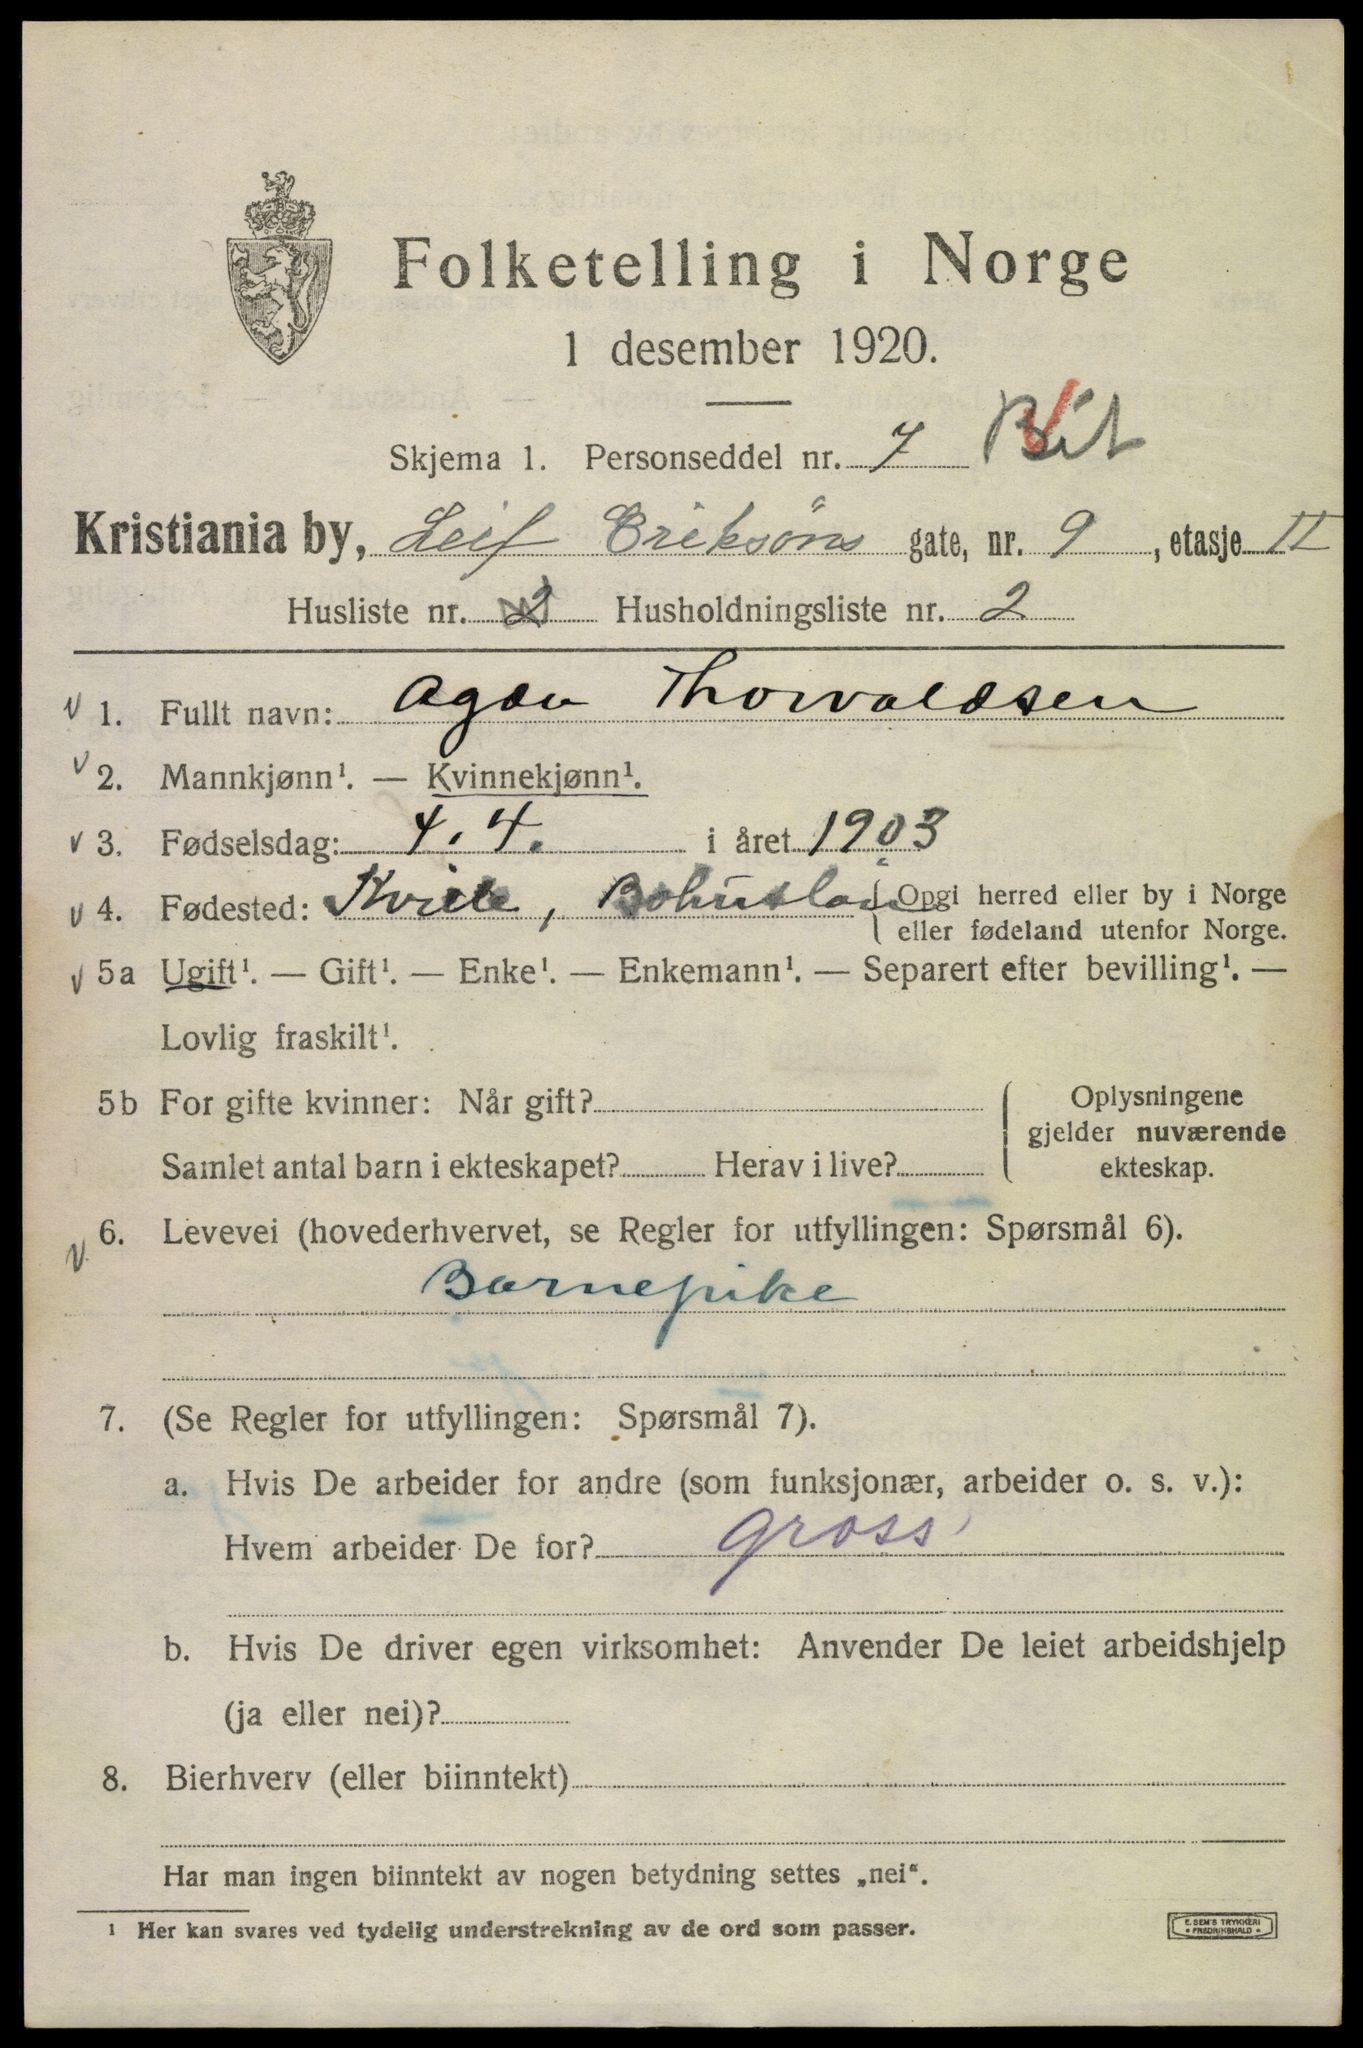 Folketelling i Norge
1 desember 1920.
Skjema 1. Personseddel nr. 7
Kristiania by, Leif Eriksøns gate, nr. 9, etasje II
Husliste nr. 2 Husholdningsliste nr. 2
1. Fullt navn: Thorvaldsen
2. Mannkjønn¹. — Kvinnekjønn¹.
3. Fødselsdag: 4. 4. i året 1903
4. Fødested: Kville, Bohuslän Opgi herred eller by i Norge
eller fødeland utenfor Norge.
5a Ugift¹. — Gift¹. — Enke¹. — Enkemann¹. — Separert efter bevilling¹. —
Lovlig fraskilt¹.
5b For gifte kvinner: Når gift? Oplysningene
gjelder nuværende
Samlet antal barn i ekteskapet? Herav i live? ekteskap.
6. Levevei (hovederhvervet, se Regler for utfyllingen: Spørsmål 6).
Barnepike
7. (Se Regler for utfyllingen: Spørsmål 7).
a. Hvis De arbeider for andre (som funksjonær, arbeider o. s. v.):
Hvem arbeider De for? gross
b. Hvis De driver egen virksomhet: Anvender De leiet arbeidshjelp
(ja eller nei)?
8. Bierhverv (eller biinntekt)
Har man ingen biinntekt av nogen betydning settes „nei“.
¹ Her kan svares ved tydelig understrekning av de ord som passer.
E. SEM'S TRYKKERI
FREDRIKSHALD